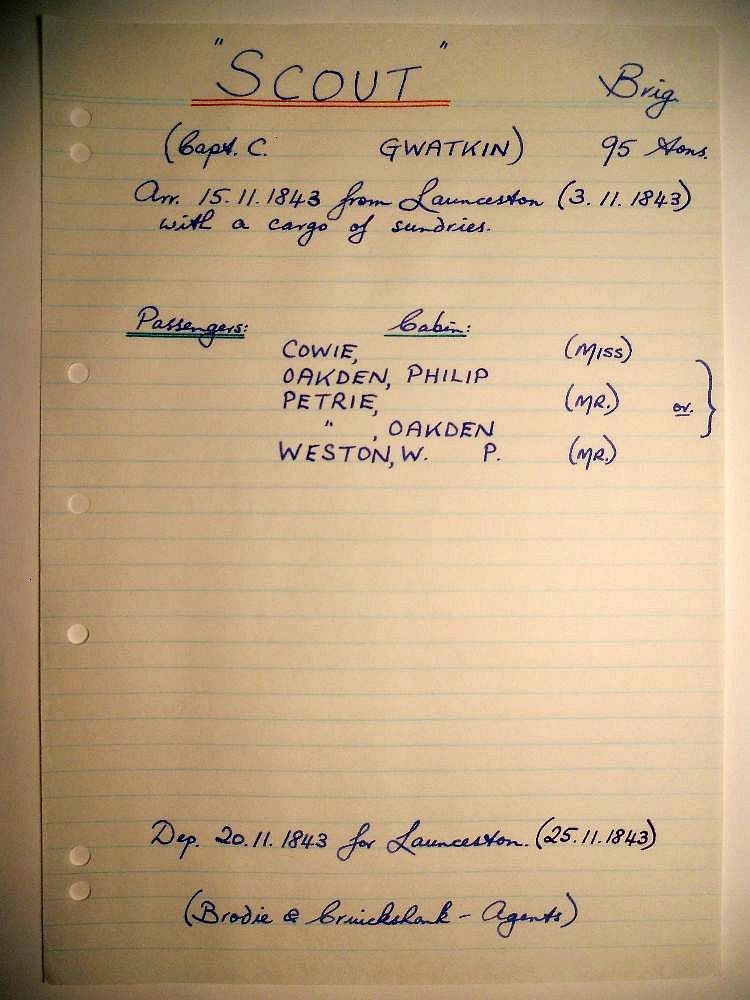 "SCOUT" Brig
(Capt. C. GWATKIN) 95 tons.
Arr. 15.11.1843 from Launceston (3.11.1843)
with a cargo of sundries.
Passengers: Cabin:
COWIE, (MISS)
OAKDEN, PHILIP
PETRIE, (MR.) or.
" , OAKDEN
WESTON, W. P. (MR.)
Dep. 20.11.1843 for Launceston. (25.11.1843)
(Brodie & Cruickshank - Agents)